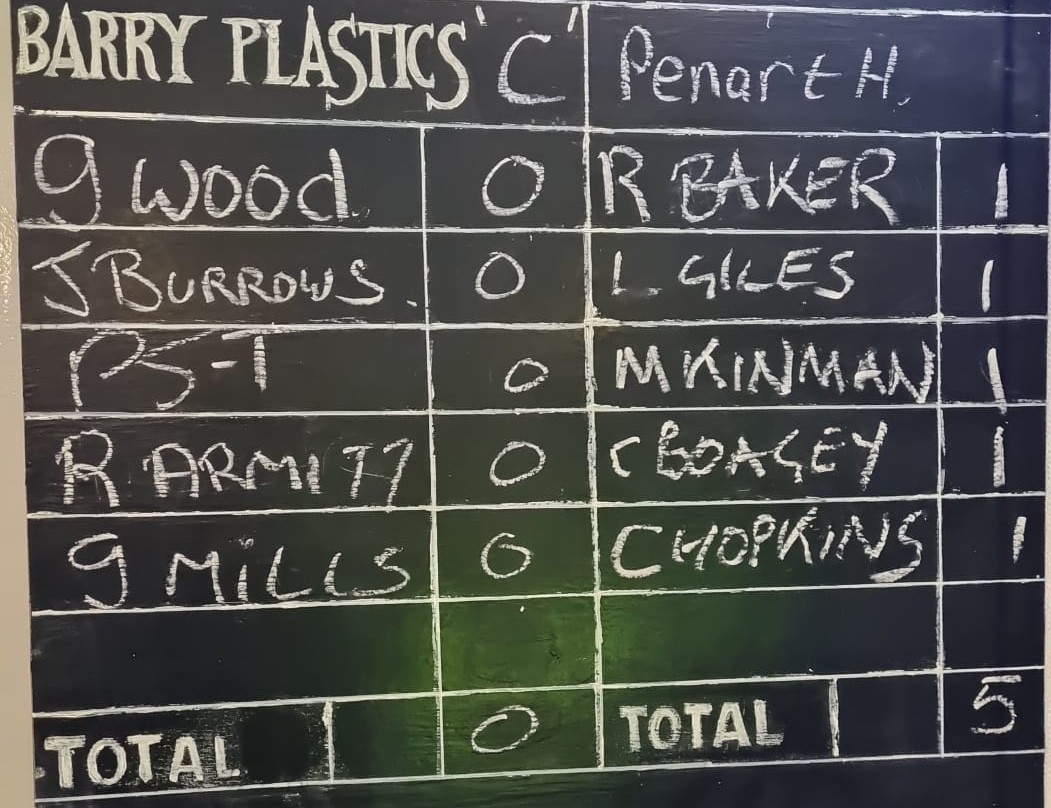 BARRY PLASTICS 'C' Penart H.
G WOOD 0 R BAKER 1
J BURROWS. 0 L GILES 1
0 M KINMAN 1
R ARMITT 0 C BOASEY 1
G MILLS 0 C HOPKINS 1
TOTAL 0 TOTAL 5